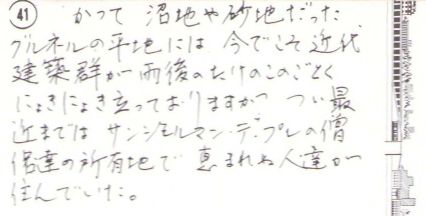 41 かつて 沼地や砂地だった
グルネルの平地には 今でこそ近代
建築群が雨後のたけのこのごとく
にょきにょき立っておりますがつい最
近までは サンジェルマン・デ・プレの僧
侶達の所有地で 恵まれぬ人達が
住んでいた。